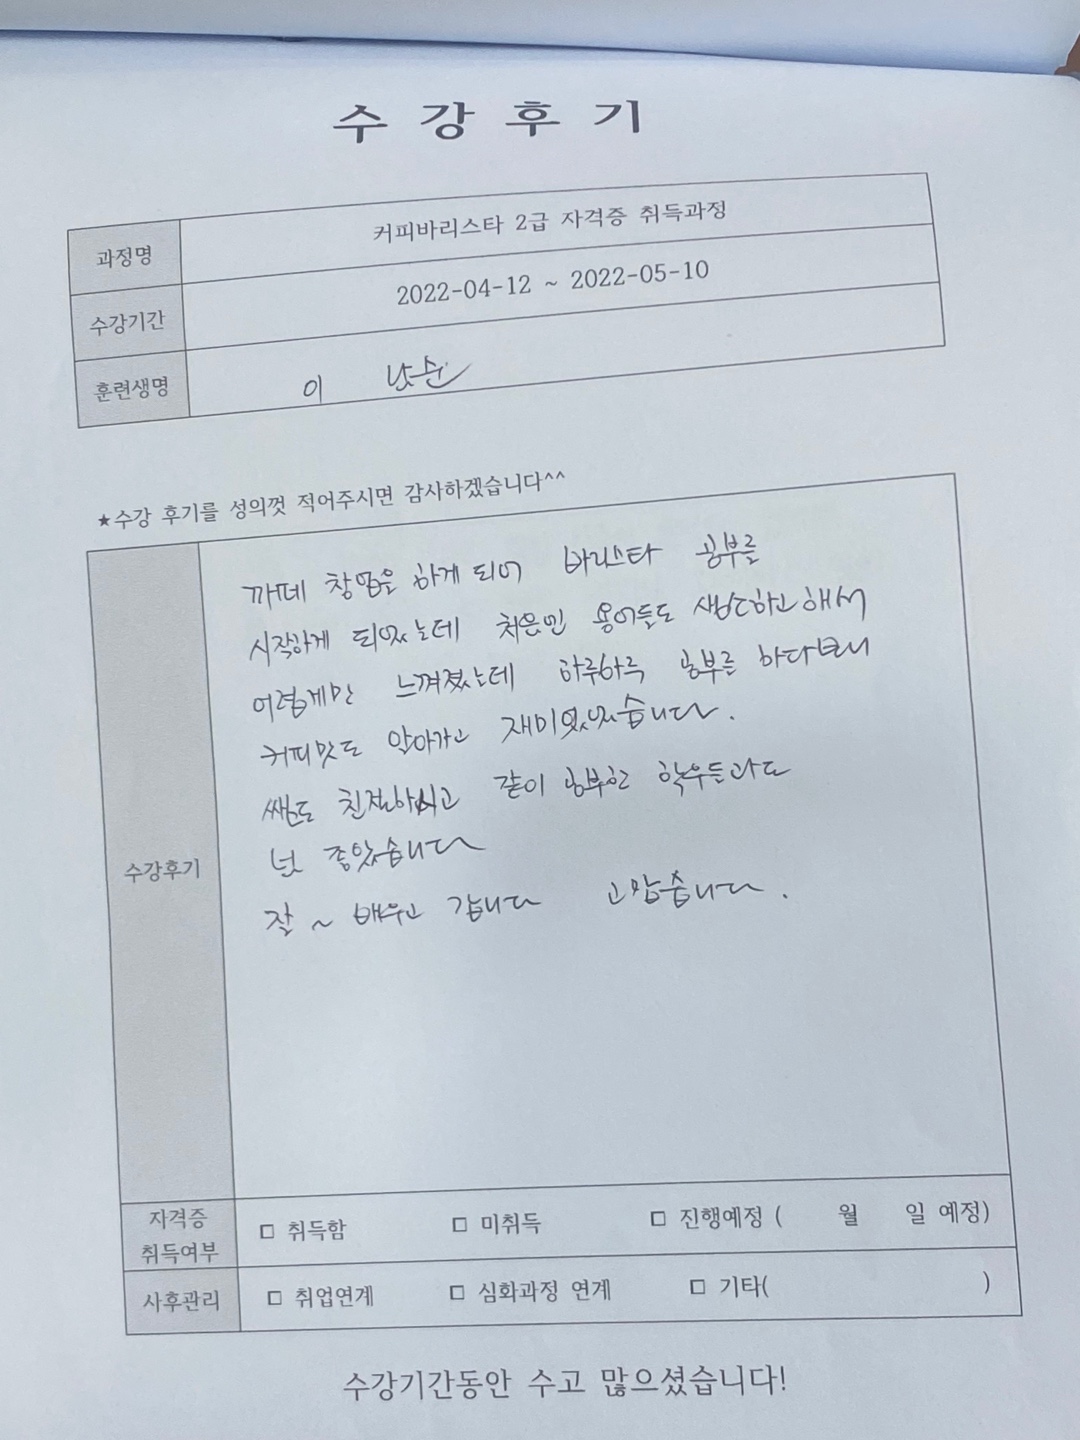 수 강 후 기
과정명 커피바리스타 2급 자격증 취득과정
수강기간 2022-04-12 ~ 2022-05-10
훈련생명 이
★수강 후기를 성의껏 적어주시면 감사하겠습니다^^
수강후기
까페 창업을 하게 되어 바리스타 공부를
시작하게 되었는데 처음인 용어들도 생소하고 해서
어렵게만 느껴졌는데 하루하루 공부를 하다보니
커피맛도 알아가고 재미있었습니다.
쌤도 친절하시고 같이 공부한 학우들과도
넘 좋았습니다
잘 ~ 배우고 갑니다 고맙습니다.
자격증 취득여부 □ 취득함 □ 미취득 □ 진행예정 ( 월 일 예정)
사후관리 □ 취업연계 □ 심화과정 연계 □ 기타( )
수강기간동안 수고 많으셨습니다!